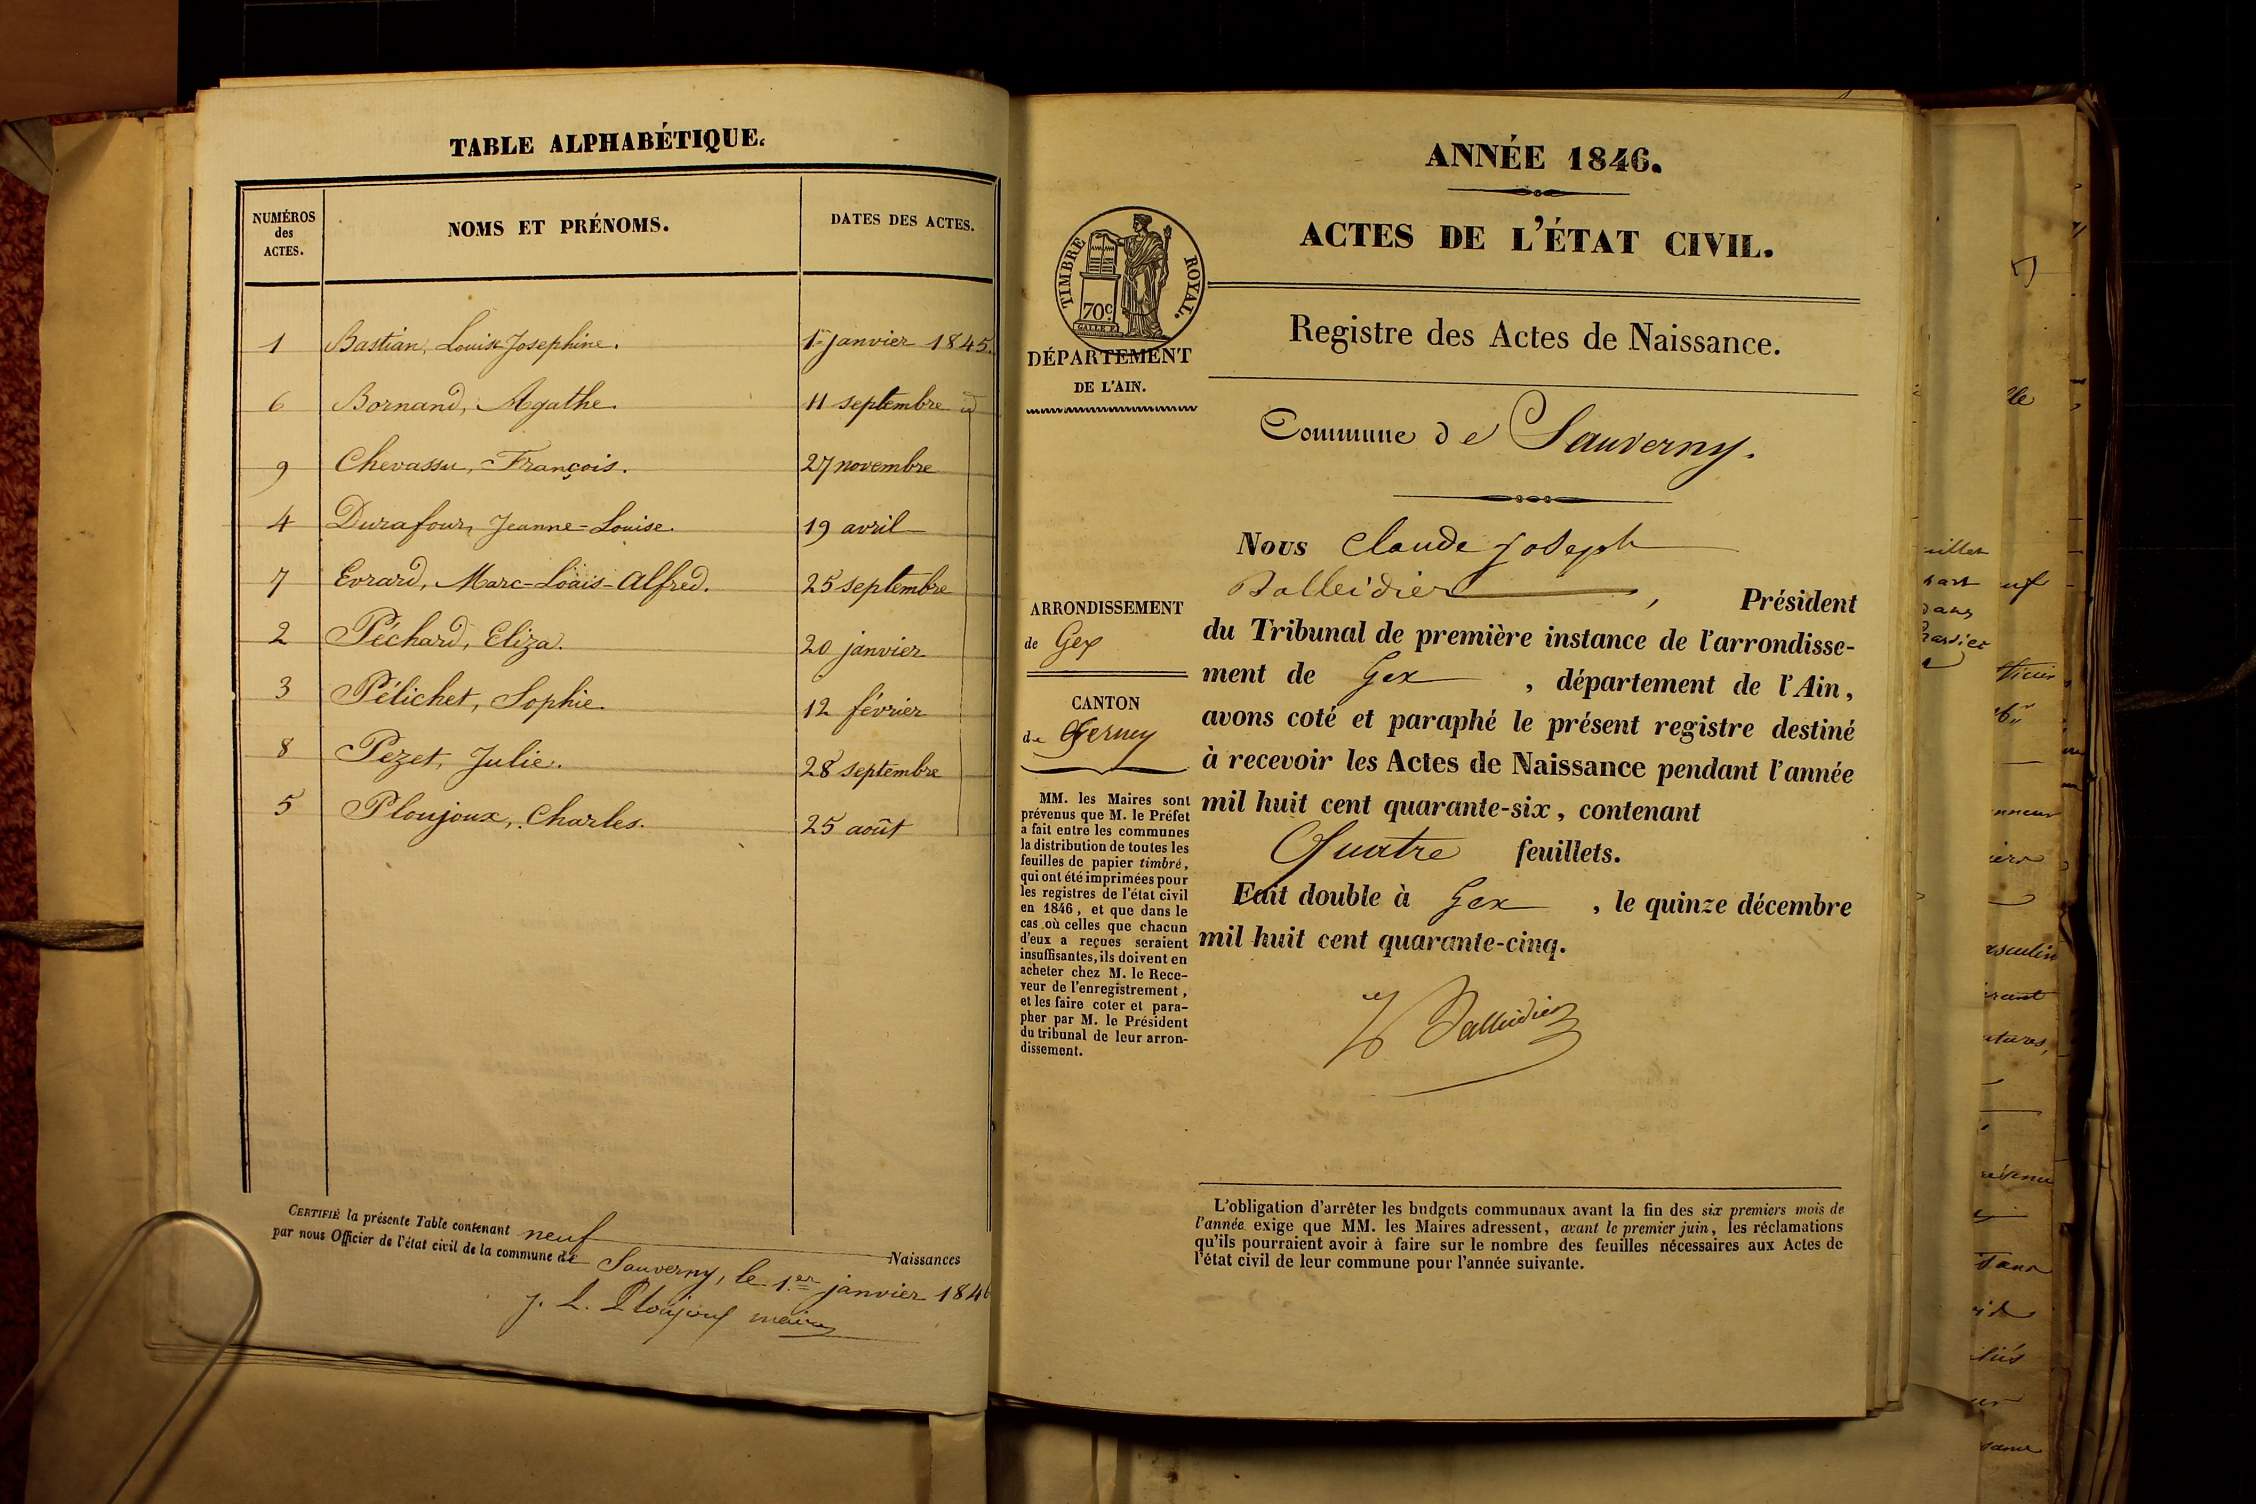 TABLE ALPHABÉTIQUE.
NUMÉROS
des
ACTES.
NOMS ET PRÉNOMS.
DATES DES ACTES.
1 Bastian, Louise Josephine. 1er janvier 1845.
6 Bornand, Agathe. 11 septembre id
9 Chevassu, François. 27 novembre
4 Durafour, Jeanne-Louise. 19 avril
7 Evrard, Marc-Louis-Alfred. 25 septembre
2 Péchard, Eliza. 20 janvier
3 Pélichet, Sophie. 12 février
8 Pezet, Julie. 28 septembre
5 Ploujoux, Charles. 25 août
CERTIFIÉ la présente Table contenant neuf Naissances
par nous Officier de l'état civil de la commune de Sauverny, le 1.er janvier 1846
J. L. Ploujoux maire
ANNÉE 1846.
ACTES DE L'ÉTAT CIVIL.
TIMBRE ROYAL.
70c.
DÉPARTEMENT
DE L'AIN.
Registre des Actes de Naissance.
Commune de Sauverny.
Nous Claude Joseph
Balleidier, Président
du Tribunal de première instance de l'arrondisse-
ment de Gex, département de l'Ain,
avons coté et paraphé le présent registre destiné
à recevoir les Actes de Naissance pendant l'année
mil huit cent quarante-six, contenant
Quatre feuillets.
Fait double à Gex, le quinze décembre
mil huit cent quarante-cinq.
Balleidier
ARRONDISSEMENT
de Gex
CANTON
de Ferney
MM. les Maires sont
prévenus que M. le Préfet
a fait entre les communes
la distribution de toutes les
feuilles de papier timbré,
qui ont été imprimées pour
les registres de l'état civil
en 1846, et que dans le
cas où celles que chacun
d'eux a reçues seraient
insuffisantes, ils doivent en
acheter chez M. le Rece-
veur de l'enregistrement,
et les faire coter et para-
pher par M. le Président
du tribunal de leur arron-
dissement.
L'obligation d'arrêter les budgets communaux avant la fin des six premiers mois de
l'année exige que MM. les Maires adressent, avant le premier juin, les réclamations
qu'ils pourraient avoir à faire sur le nombre des feuilles nécessaires aux Actes de
l'état civil de leur commune pour l'année suivante.